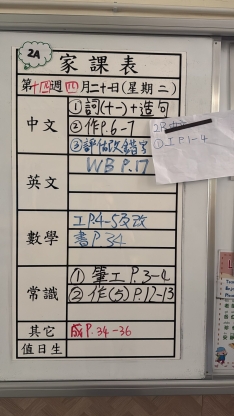 2A
家課表
第十四週 四月二十日(星期二)
中文
①詞(十一)+造句
②作P.6-7
③評估改錯字
①工P.1-4
英文
WB P.17
數學
工P.4-5及改
書P.34
常識
①筆工P.3-4
②作(5)P.12-13
其它
成P.34-36
值日生